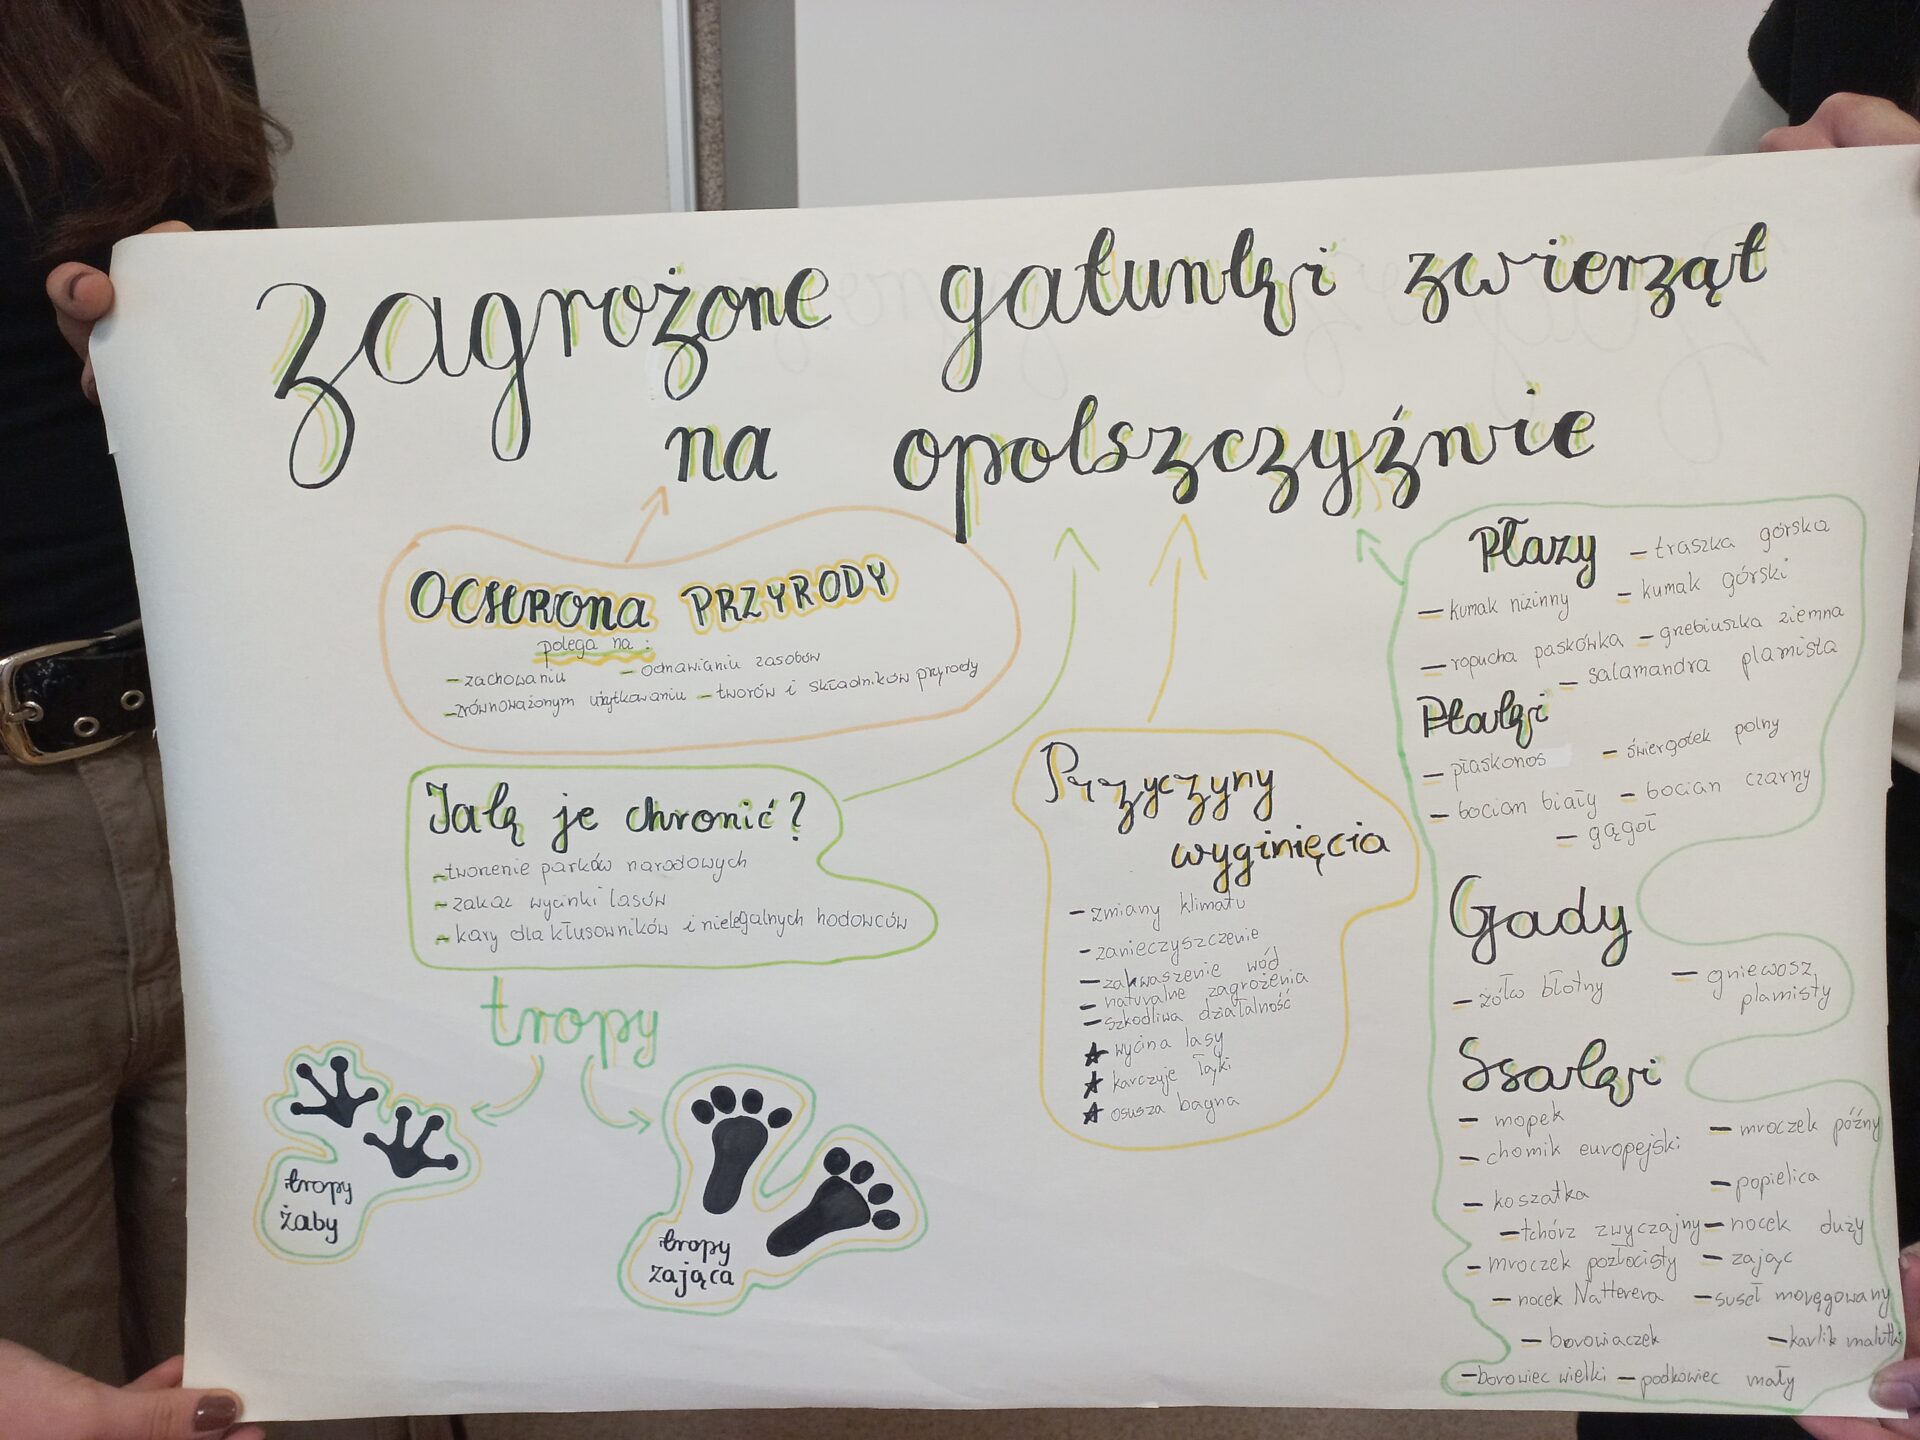 Zagrożone gatunki zwierząt
na opolszczyźnie
OCHRONA PRZYRODY
polega na:
- zachowaniu - odnawianiu zasobów
- zrównoważonym użytkowaniu - tworów i składników przyrody
Jak je chronić?
- tworzenie parków narodowych
- zakaz wycinki lasów
- kary dla kłusowników i nielegalnych hodowców
tropy
tropy
żaby
tropy
zająca
Przyczyny
wyginięcia
- zmiany klimatu
- zanieczyszczenie
- zakwaszenie wód
- naturalne zagrożenia
- szkodliwa działalność
★ wycina lasy
★ karczuje łąki
★ osusza bagna
Płazy - traszka górska
- kumak nizinny - kumak górski
- ropucha paskówka - grzebiuszka ziemna
- salamandra plamista
Ptaki
- płaskonos - świergotek polny
- bocian biały - bocian czarny
- gągoł
Gady
- żółw błotny - gniewosz
plamisty
Ssaki
- mopek - mroczek późny
- chomik europejski
- koszatka - popielica
- tchórz zwyczajny - nocek duży
- mroczek pozłocisty - zając
- nocek Natterera - suseł moręgowany
- borowiaczek - karlik malutki
- borowiec wielki - podkowiec mały